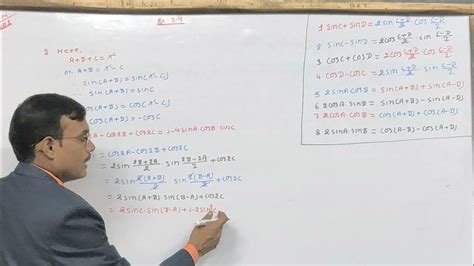 Ex 5.4
2 Here,
A+B+C=πᶜ
or A+B=πᶜ-C
sin(A+B)=sin(πᶜ-C)
sin(A+B)=sinC
cos(A+B)=cos(πᶜ-C)
cos(A+B)=-cosC
cos2A-cos2B+cos2C=1-4sinA cosB sinC
=cos2A-cos2B+cos2C
=2sin (2B+2A)/2 . sin (2B-2A)/2 +cos2C
=2sin 2(A+B)/2 . sin 2(B-A)/2 +cos2C
=2sin(A+B).sin(B-A)+cos2C
=2sinC.sin(B-A)+1-2sin²C
1 sinC+sinD=2sin (C+D)/2 . cos (C-D)/2
2 sinC-sinD=2cos (C+D)/2 . sin (C-D)/2
3 cosC+cosD=2cos (C+D)/2 . cos (C-D)/2
4 cosD-cosC=2sin (C+D)/2 . sin (C-D)/2
5 2sinA cosB=sin(A+B)+sin(A-B)
6 2cosA.sinB=sin(A+B)-sin(A-B)
7 2cosA.cosB=cos(A+B)+cos(A-B)
8 2sinA.sinB=cos(A-B)-cos(A+B)